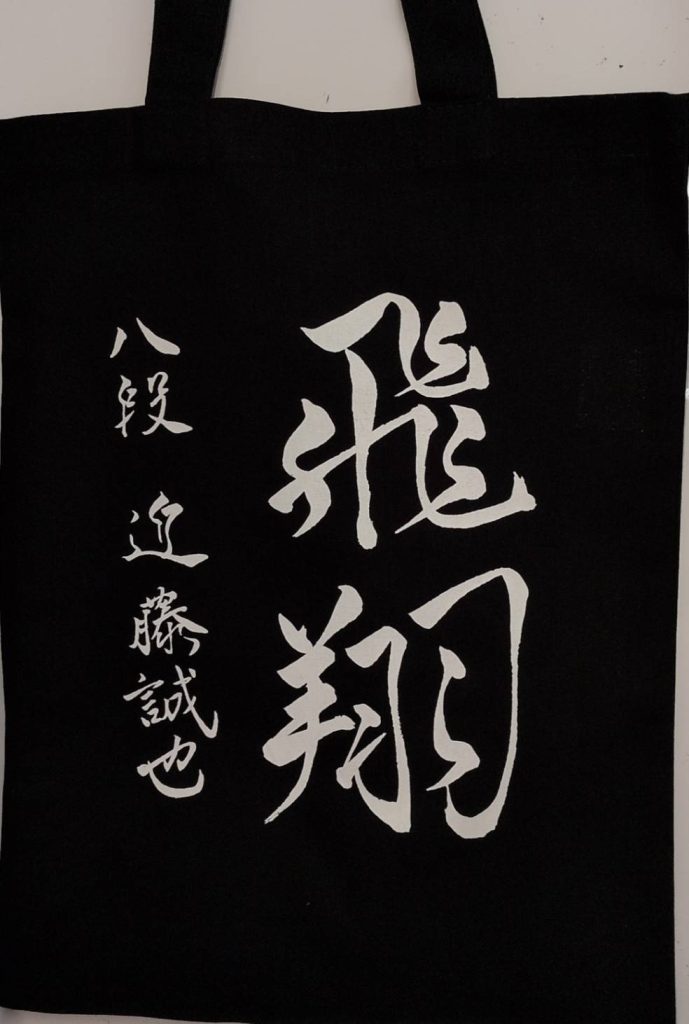 飛翔
八段 近藤誠也